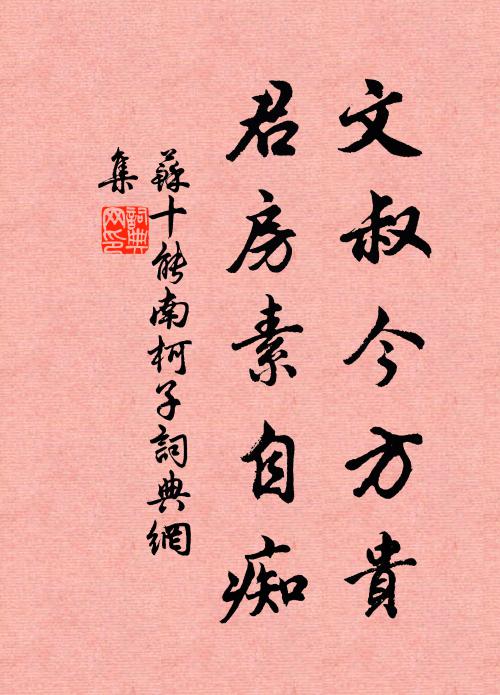 文叔今方貴
君房素自痴
蘇十能南柯子詞典網
集
詞典
網印